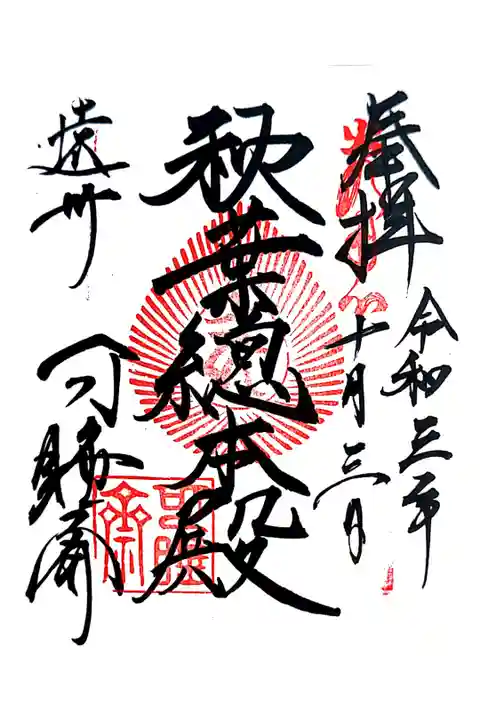 奉拝
令和三年
十月三日
秋葉總本殿
遠州
可睡斎